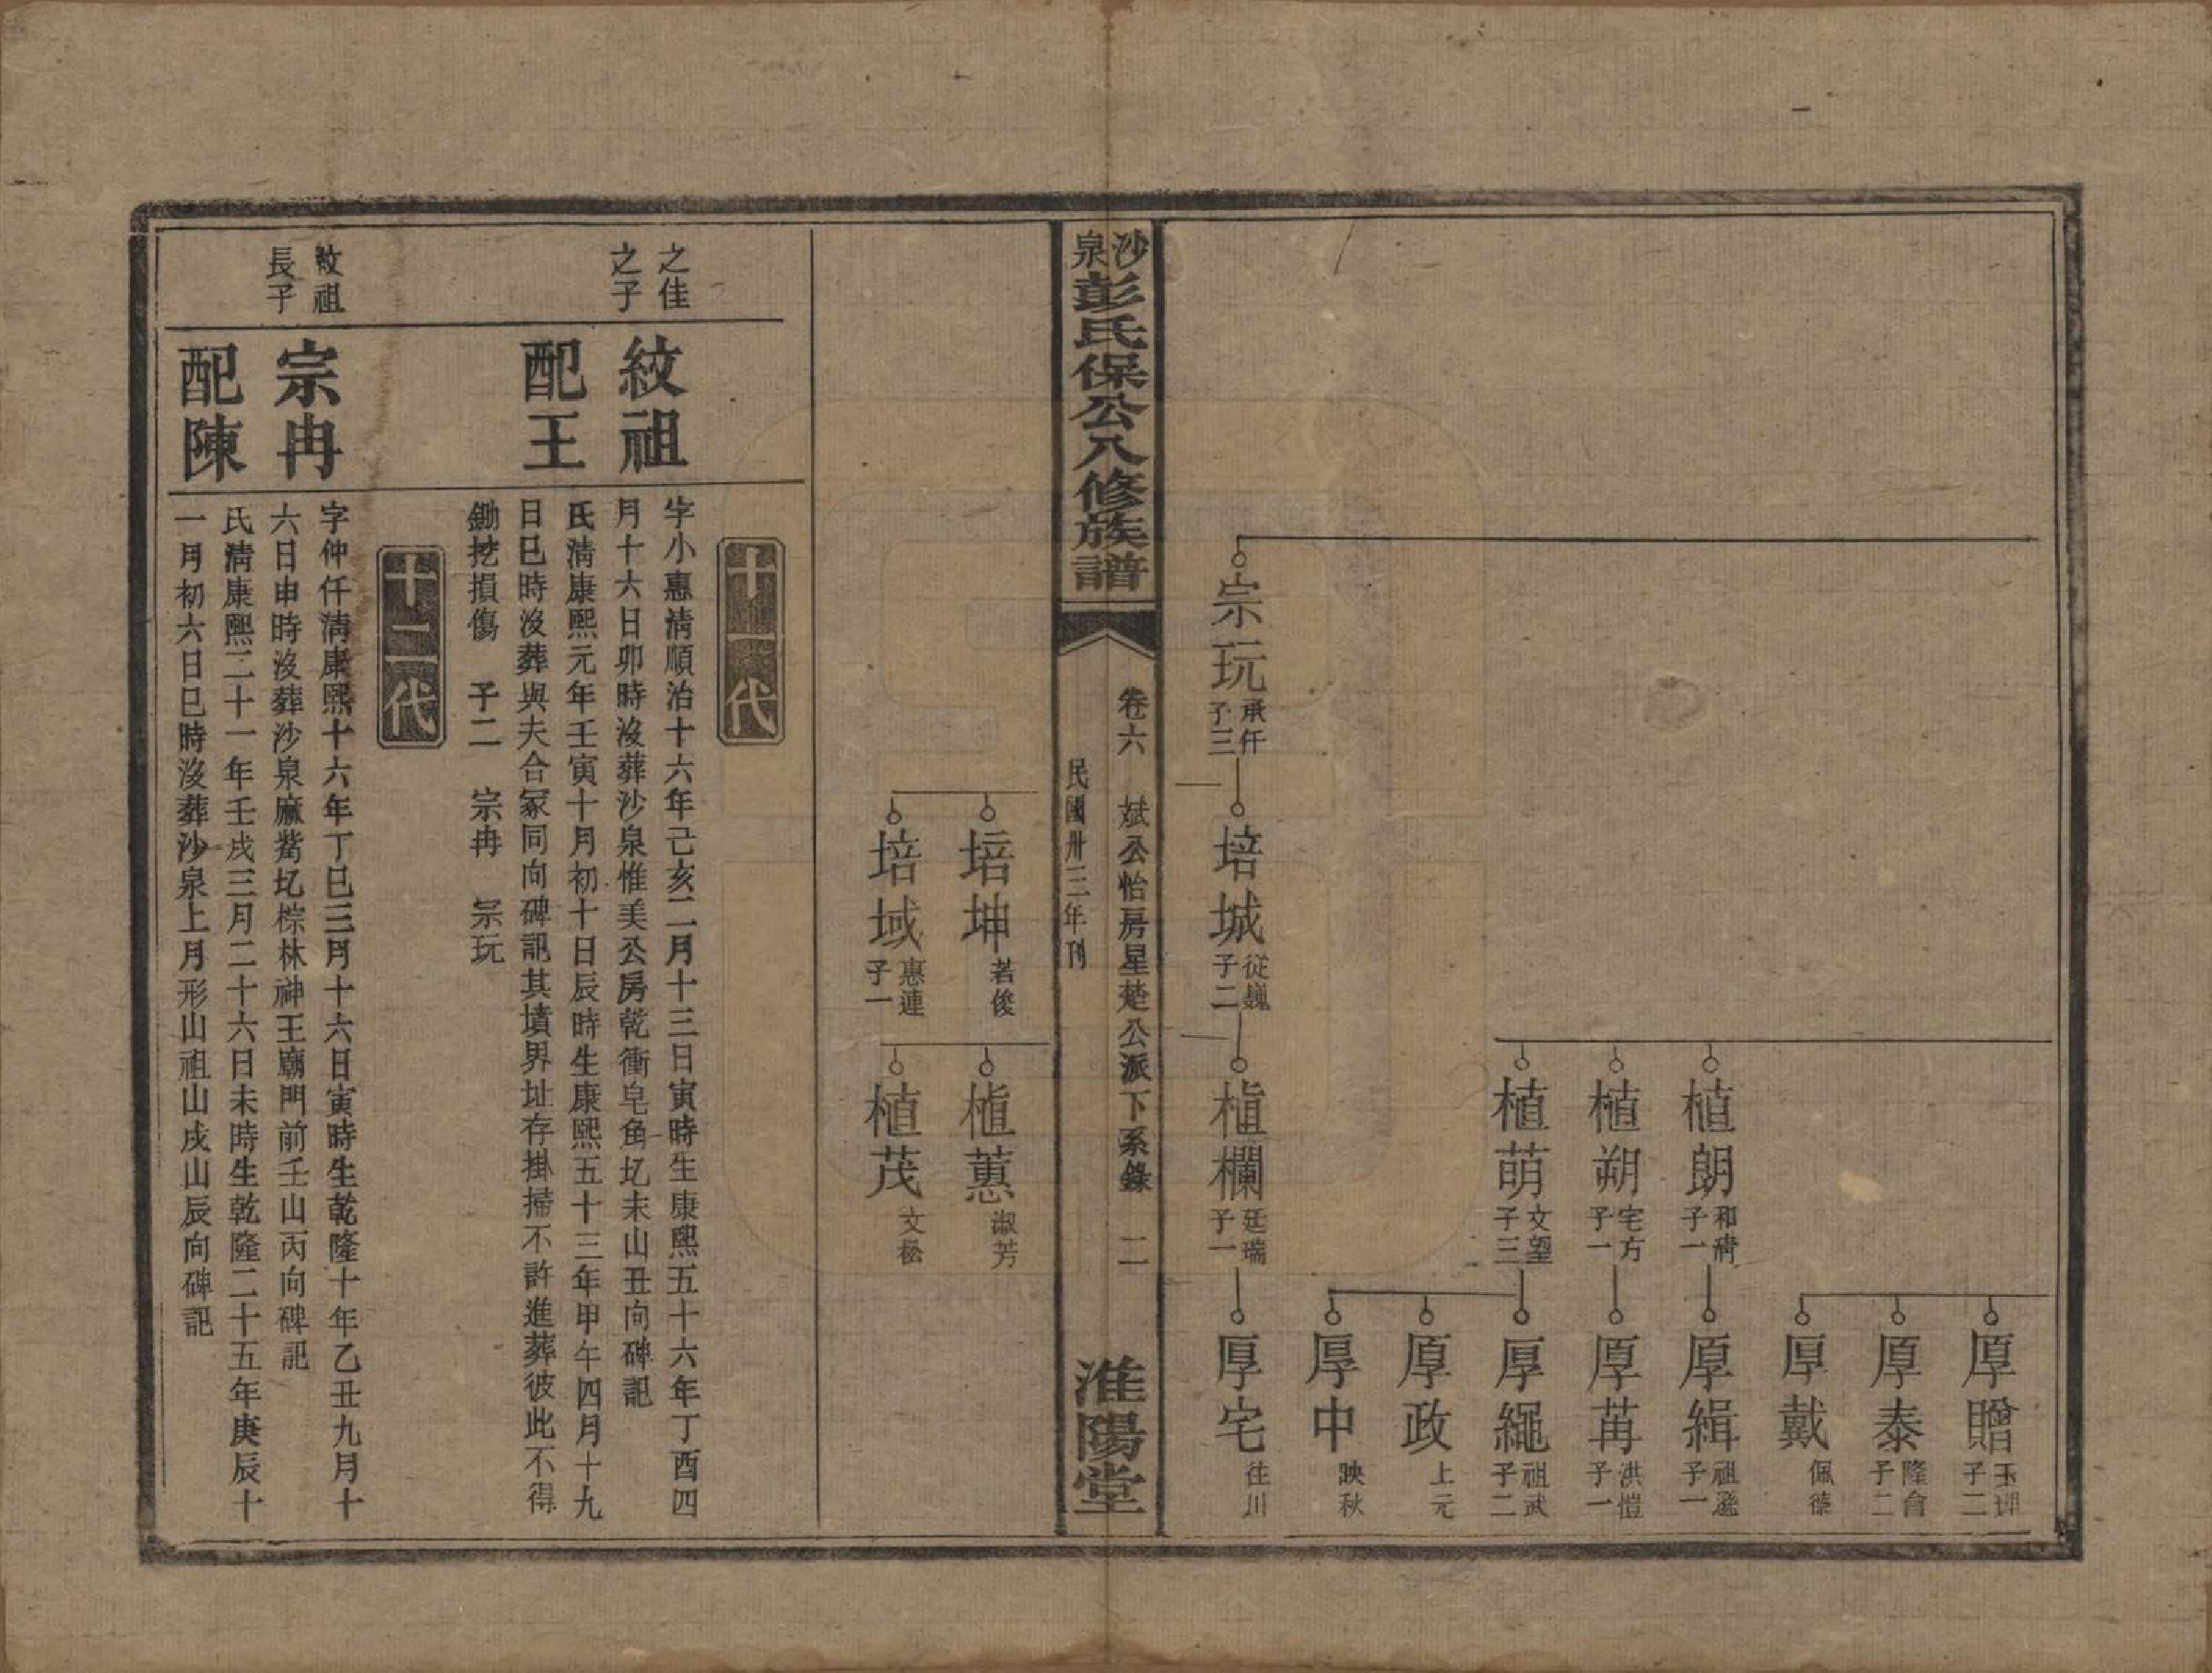 宗玩 承仟 子三
培城 從巍 子二
植朗 和清 子一
植朔 宅方 子一
植萌 文望 子三
植欄 廷瑞 子一
厚贈 子二
厚泰 隆會 子二
厚戴 佩德
厚緝 祖遜 子一
厚苒 洪愷 子一
厚繩 祖武 子二
厚政 上元
厚中 映秋
厚宅 往川
沙泉彭氏保公八修族譜
卷六 斌公怡房星楚公派下系錄 二
民國卅三年刊
淮陽堂
培坤 若俊
培域 惠連 子一
植蕙 淑芳
植茂 文松
十一代
之佳之子
紋祖
字小惠清順治十六年己亥二月十三日寅時生康熙五十六年丁酉四
月十六日卯時沒葬沙泉惟美公房乾衝皂角圪未山丑向碑記
配王
氏清康熙元年壬寅十月初十日辰時生康熙五十三年甲午四月十九
日巳時沒葬與夫合冢同向碑記其墳界址存掛掃不許進葬彼此不得
鋤挖損傷 子二 宗冉 宗玩
十二代
紋祖長子
宗冉
字仲仟清康熙十六年丁巳三月十六日寅時生乾隆十年乙丑九月十
六日申時沒葬沙泉麻蒿圪棕林神王廟門前壬山丙向碑記
配陳
氏清康熙二十一年壬戌三月二十六日未時生乾隆二十五年庚辰十
一月初六日巳時沒葬沙泉上月形山祖山戌山辰向碑記